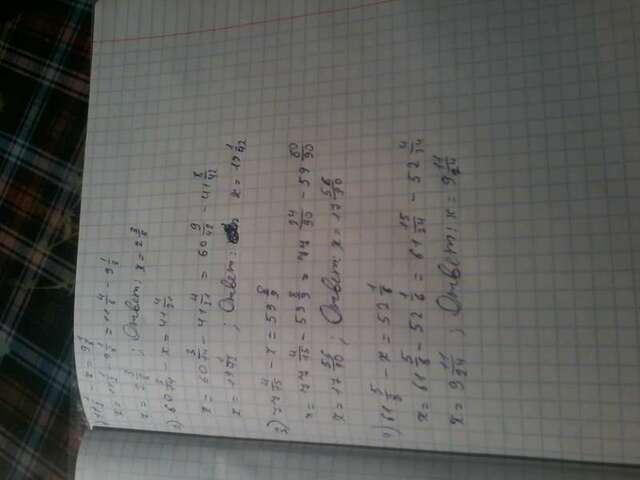 x = 11 1/2 - 9 1/8 = 11 4/8 - 9 1/8
x = 2 3/8 ; Ответ: x = 2 3/8
2) 60 3/14 - x = 41 4/21
x = 60 3/14 - 41 4/21 = 60 9/42 - 41 8/42
x = 19 1/42 ; Ответ: x = 19 1/42
3) 77 4/15 - x = 59 8/9
x = 77 4/15 - 59 8/9 = 77 24/90 - 59 80/90
x = 17 56/90 ; Ответ: x = 17 56/90
4) 61 5/8 - x = 52 1/6
x = 61 5/8 - 52 1/6 = 61 15/24 - 52 4/24
x = 9 11/24 ; Ответ: x = 9 11/24